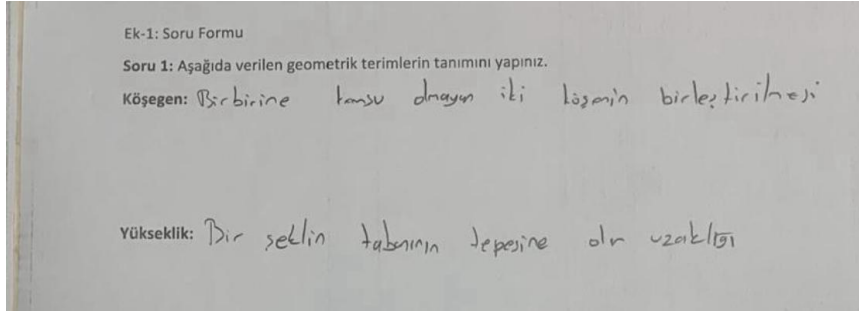 Ek-1: Soru Formu
Soru 1: Aşağıda verilen geometrik terimlerin tanımını yapınız.
Köşegen: Birbirine komşu olmayan iki köşenin birleştirilmesi
Yükseklik: Bir şeklin tabanının tepesine olan uzaklığı